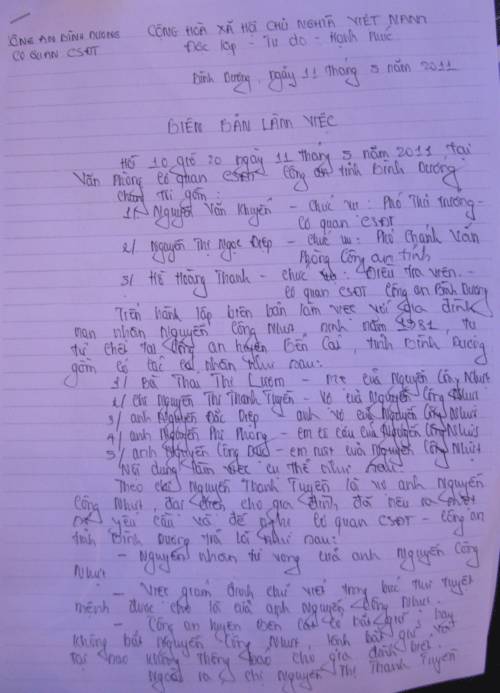 CÔNG AN BÌNH DƯƠNG
CỘNG HOÀ XÃ HỘI CHỦ NGHĨA VIỆT NAM
CƠ QUAN CSĐT
Độc lập - Tự do - Hạnh Phúc
Bình Dương, ngày 11 tháng 5 năm 2011
BIÊN BẢN LÀM VIỆC
Hồi 10 giờ 20 ngày 11 tháng 5 năm 2011 tại
Văn Phòng cơ quan CSĐT Công an tỉnh Bình Dương,
chúng tôi gồm:
1/ Nguyễn Văn Khuyến - Chức vụ: Phó Thủ trưởng -
Cơ quan CSĐT
2/ Nguyễn Thị Ngọc Điệp - chức vụ: Phó Chánh Văn
Phòng Công an tỉnh
3/ Hồ Hoàng Thanh - chức vụ: Điều tra viên -
Cơ quan CSĐT Công an Bình Dương
Tiến hành lập biên bản làm việc với gia đình
nạn nhân Nguyễn Công Nhựt, sinh năm 1981, tự
tử chết tại công an huyện Bến Cát, tỉnh Bình Dương
gồm có các cá nhân như sau:
1/ Bà Thai Thị Lượm - mẹ của Nguyễn Công Nhựt
2/ Chị Nguyễn Thị Thanh Tuyền - vợ của Nguyễn Công Nhựt
3/ anh Nguyễn Đắc Điệp anh vợ của Nguyễn Công Nhựt
4/ anh Nguyễn Phi Phông - em cô cậu của Nguyễn Công Nhựt
5/ anh Nguyễn Công - em ruột của Nguyễn Công Nhựt
Nội dung làm việc cụ thể như sau:
Theo chị Nguyễn Thanh Tuyền là vợ anh Nguyễn
Công Nhựt, đại diện cho gia đình đã nêu ra
yêu cầu và đề nghị Cơ quan CSĐT - Công an
tỉnh Bình Dương trả lời như sau:
- Nguyên nhân tử vong của anh Nguyễn Công
Nhựt
- Việc giám định chữ viết trong bức thư tuyệt
mệnh được cho là của anh Nguyễn Công Nhựt.
- Công an huyện Bến Cát có bắt giữ hay
không bắt Nguyễn Công Nhựt, lệnh bắt giữ và
tại sao không thông báo cho gia đình biết.
Ngoài ra chị Nguyễn Thị Thanh Tuyền